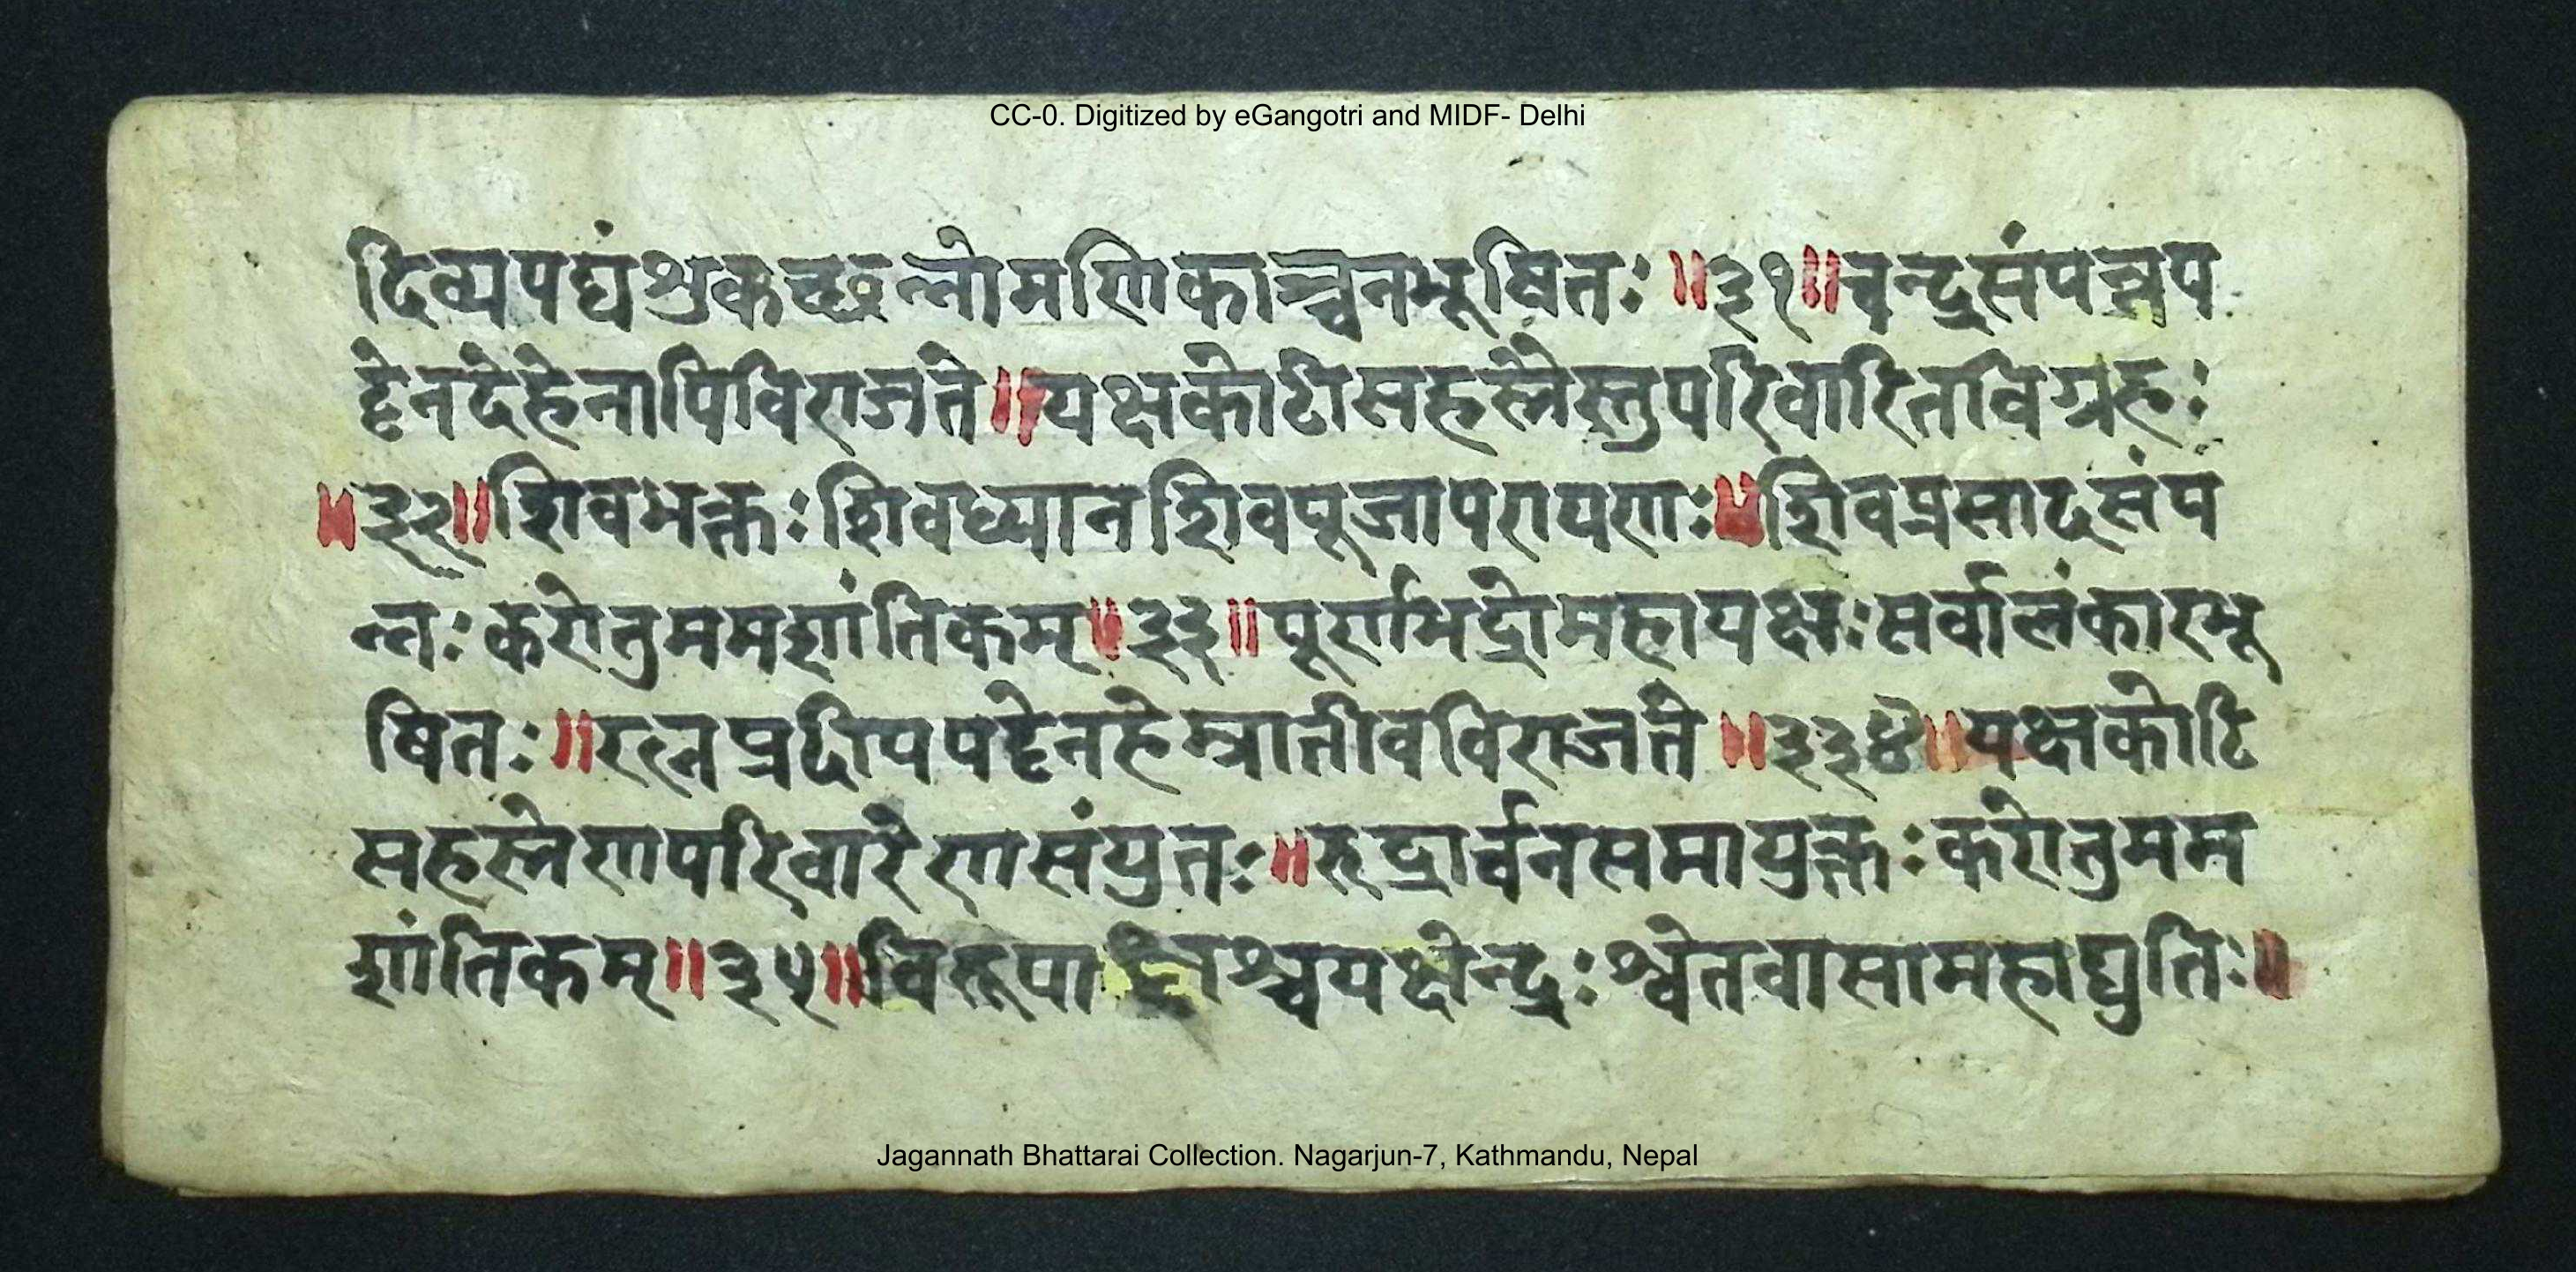 CC-0. Digitized by eGangotri and MIDF- Delhi
दिव्यपद्यंशुकच्छन्नोमणिकाञ्चनभूषितः ॥३१॥ चन्द्रसंपन्नप
ट्टेनदेहेनापिविराजते॥यक्षकोटिसहस्त्रैस्तुपरिवारितविग्रहः
॥३२॥शिवभक्तःशिवध्यानशिवपूजापरायणः॥शिवप्रसादसंप
न्नःकरोतुममशांतिकम्॥३३॥पूर्णभद्रोमहायक्षःसर्वालंकारभू
षितः॥रत्नप्रदीपपट्टेनहेम्नातीवविराजते॥३३४॥यक्षकोटि
सहस्त्रेणपरिवारेणसंयुतः॥रुद्रार्चनसमायुक्तःकरोतुमम
शांतिकम्॥३५॥विरूपाक्षश्चयक्षेन्द्रःश्वेतवासामहाद्युतिः॥
Jagannath Bhattarai Collection. Nagarjun-7, Kathmandu, Nepal